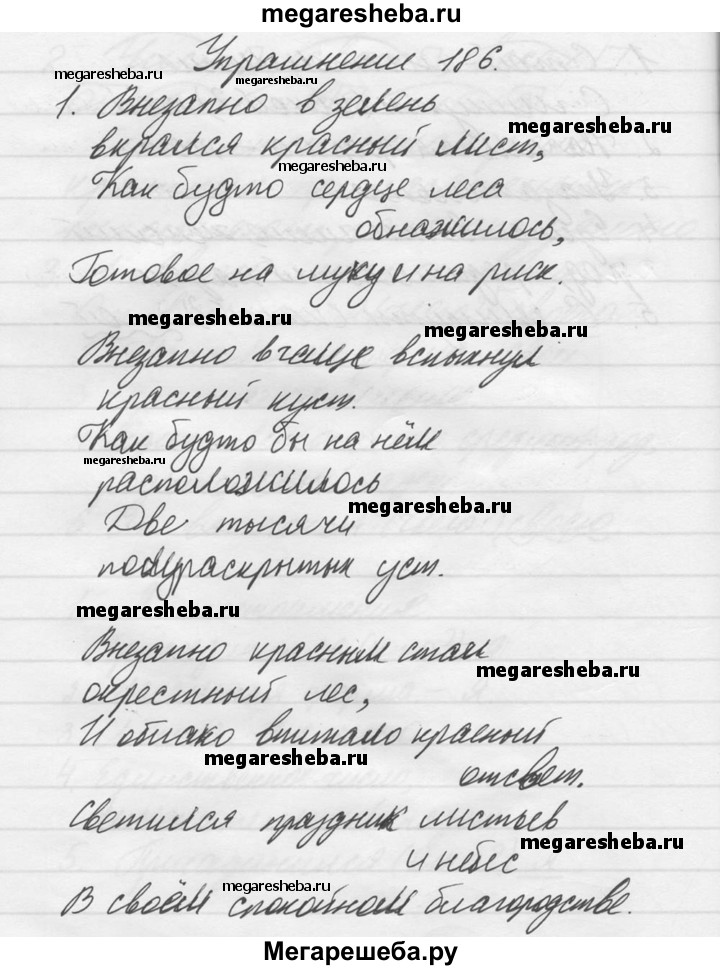 megaresheba.ru
Упражнение 186.
megaresheba.ru
1. Внезапно в зелень
megaresheba.ru
вкрался красный лист,
megaresheba.ru
Как будто сердце леса
обнажилось,
Готовое на муку и на риск.
megaresheba.ru
megaresheba.ru
Внезапно в чаще вспыхнул
красный куст.
Как будто бы на нём
megaresheba.ru
расположилось
megaresheba.ru
Две тысячи
полураскрытых уст.
megaresheba.ru
Внезапно красным стал
megaresheba.ru
окрестный лес,
И облако впитало красный
megaresheba.ru
отсвет.
Светился праздник листьев
megaresheba.ru
и небес
megaresheba.ru
В своём спокойном благородстве.
Мегарешеба.ру